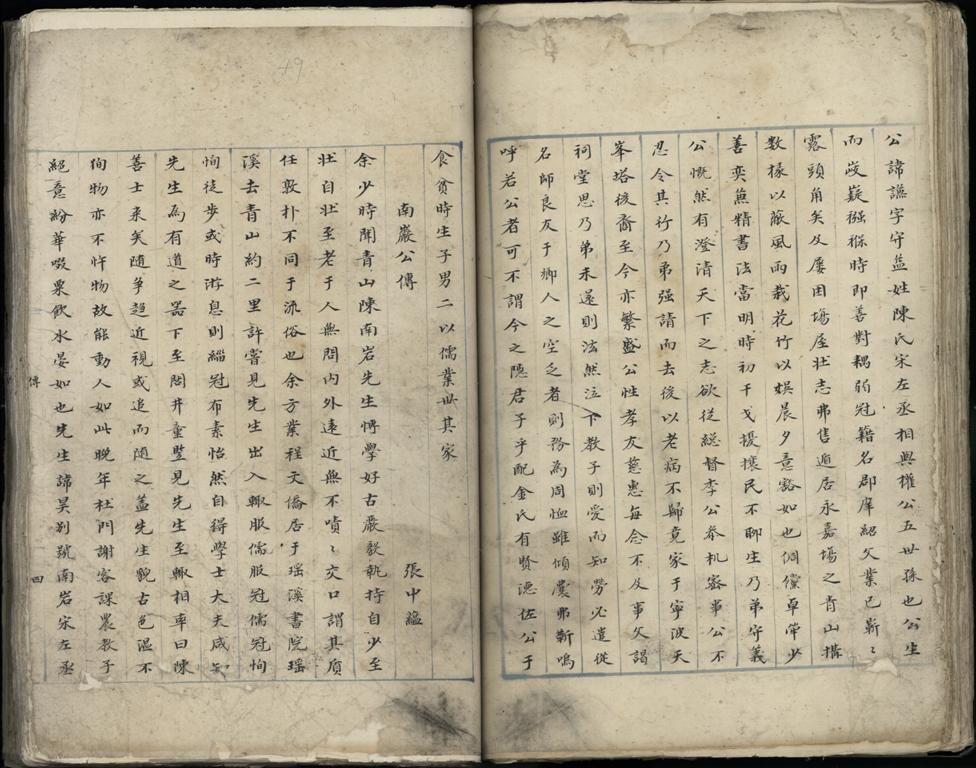 公諱讌字守益姓陳氏宋左丞相與權公五世孫也公生
而歧嶷襁褓時即善對耦弱冠籍名郡庠紹父業已嶄〻
露頭角矣及屢困場屋壯志弗售遁居永嘉場之青山構
數椽以蔽風雨栽花竹以娛晨夕意豁如也倜儻卓犖少
善奕兼精書法當明時初干戈擾攘民不聊生乃弟守義
公慨然有澄清天下之志欲從総督李公參机宻事公不
忍令其行乃弟强請而去後以老病不歸竟家于寧波天
峯塔後裔至今亦繁盛公性孝友慈惠每念不及事父謁
祠堂思乃弟未還則泫然泣下教子則愛而知勞必遣從
名師良友于鄉人之空乏者則務為周恤雖傾囊弗靳嗚
呼若公者可不謂今之隠君子乎配金氏有賢徳佐公于
食貧時生子男二以儒業世其家
南巖公傳 張中蘊
余少時聞青山陳南岩先生慱學好古嚴毅執持自少至
壯自壯至老于人無間内外遠近無不嘖〻交口謂其質
任敦朴不同于流俗也余方業程文僑居于瑶溪書院瑶
溪去青山約二里許嘗見先生出入輙服儒服冠儒冠恂
恂徒步或時游息則緇冠布素怡然自得學士大夫咸知
先生為有道之噐下至閭井童豎見先生至輙相率曰陳
善士来矣随爭趨近視或追而随之蓋先生貌古色温不
狥物亦不忤物故能動人如此晚年杜門謝客課農教子
絕意紛華啜粟飲水晏如也先生諱昊别號南岩宋左丞
傳
四
49